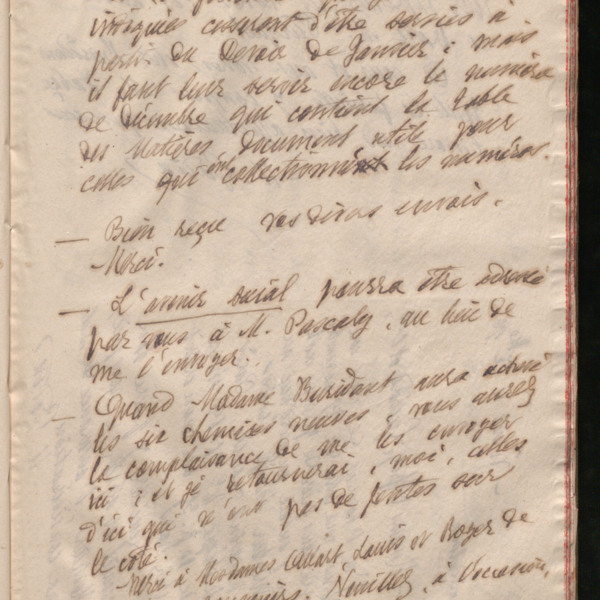 cessent d'être servies à
partir du Devoir de Janvier ; mais
il faut leur servir encore le numéro
de Décembre qui contient la table
des Matières, document utile pour
celles qui ont collectionné les numéros.
— Bien reçu vos divers envois.
Merci.
— L'avenir social pourra être adressé
par vous à M. Pascaly, au lieu de
me l'envoyer.
— Quand Madame aura achevé
les six chemises neuves, vous aurez
la complaisance de me les envoyer
ici ; et je retournerai, moi, celles
d'ici qui n'ont pas de fentes sur
le côté.
Merci à Mesdames Allart, Louis et Roger de
à l'occasion,